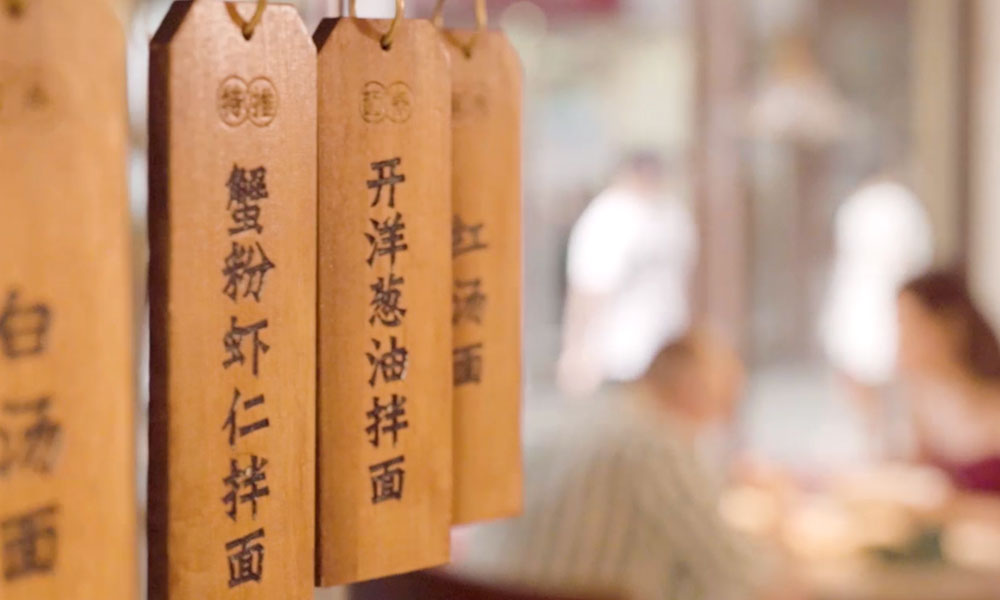 白汤面
特推
蟹粉虾仁拌面
开洋葱油拌面
红汤面